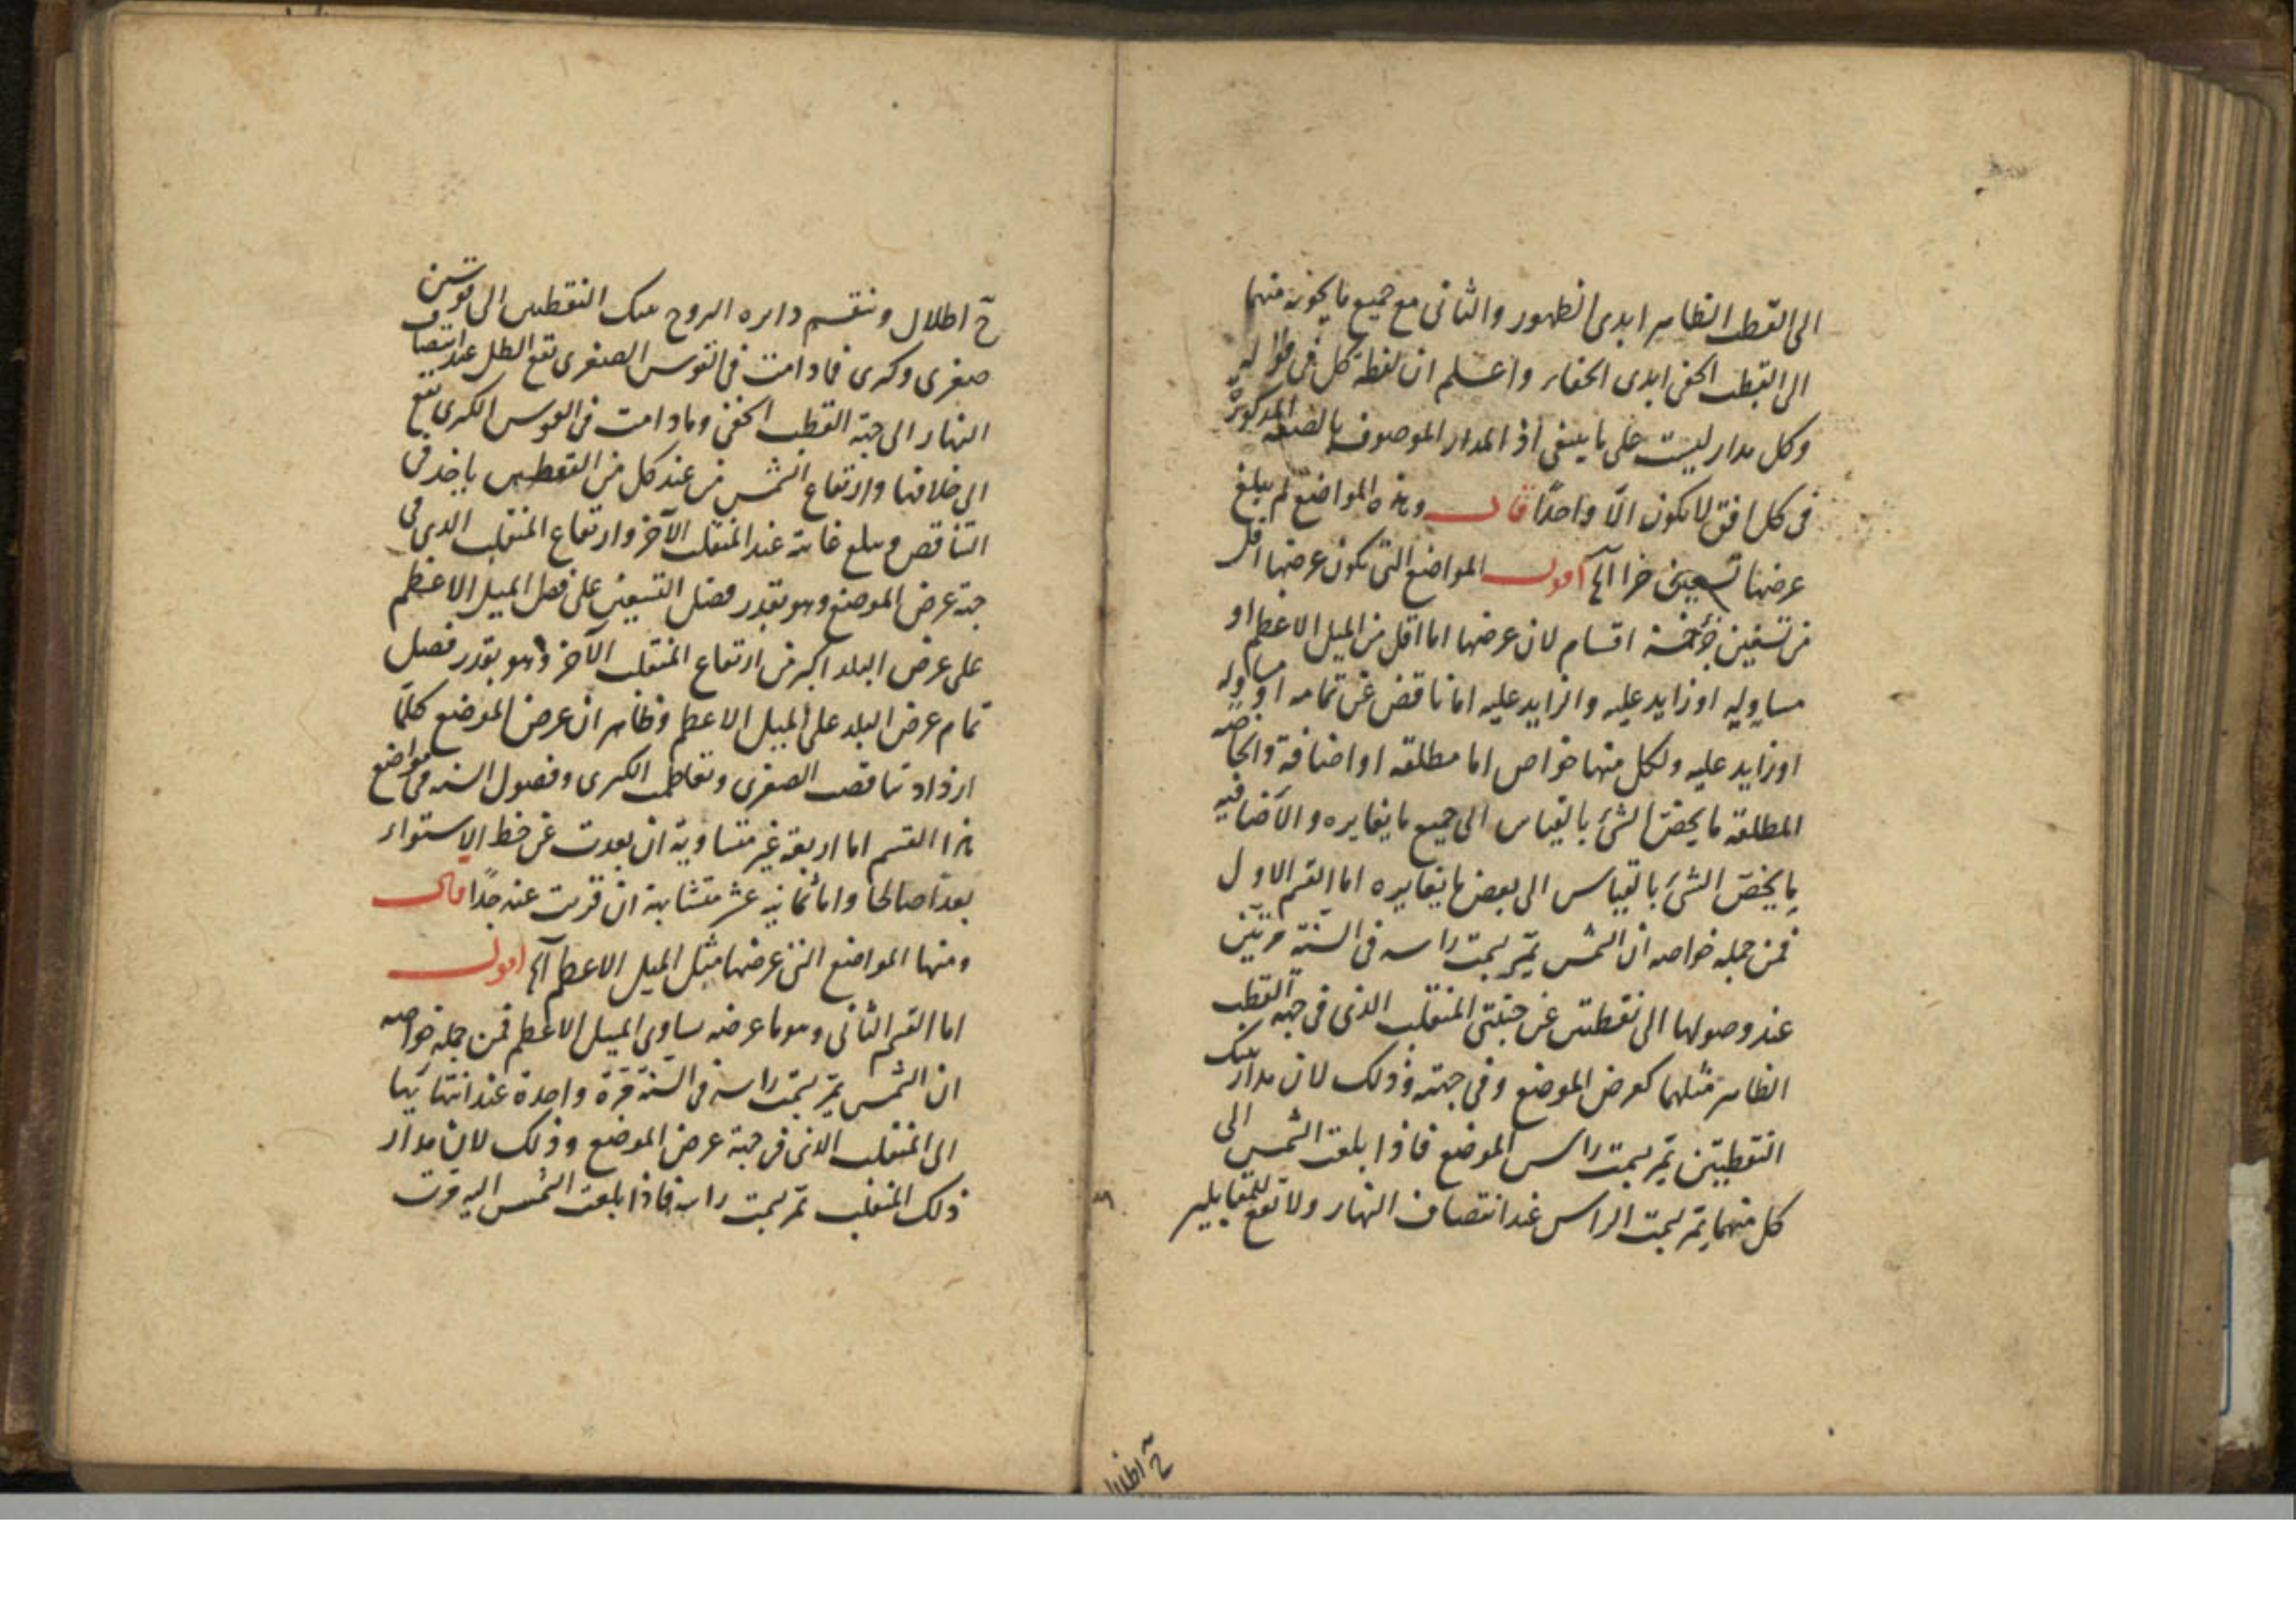 الى القطب الظاهر ابدى الظهور والثانى مع جميع ما يحويه منهما
الى القطب الخفى ابدى الخفاء واعلم ان لفظة كل فى قوله
وكل مدار ليست على ما ينبغى اذ المدار الموصوف بالصفة المذكورة
فى كل افق لا يكون الّا واحدًا قال وهذه المواضع لم يبلغ
عرضها تسعين جزا آلخ اقول المواضع التى يكون عرضها اقل
من تسعين جزء خمسة اقسام لان عرضها اما اقل من الميل الاعظم او
مساو له او زايد عليه والزايد عليه اما ناقص عن تمامه او مساو له
او زايد عليه ولكل منها خواص اما مطلقة او اضافة والخاصة
المطلقة ما يختص الشئ بالقياس الى جميع ما يغايره والاضافيه
ما يختص الشئ بالقياس الى بعض ما يغايره اما القسم الاول
فمن جملة خواصه ان الشمس تمّر بسمت راسه فى السنة مرتين
عند وصولها الى نقطتين عن جنبتى المنقلب الذى فى جهة القطب
الظاهر مثلهما كعرض الموضع وفى جهته وذلك لان مدار تينك
النقطتين تمّر بسمت راس الموضع فاذا بلغت الشمس الى
كل منهما تمّر بسمت الراس عند انتصاف النهار ولا تقع للمقابلير
حٓ اطلال
حٓ اطلال وتنقسم دايره البروج بتينك النقطتين الى قوسين
صغرى وكبرى فما دامت فى القوس الصغرى تقع الظل عند انتصاف
النهار الى جهة القطب الخفى وما دامت فى القوس الكبرى تقع
الى خلافها وارتفاع الشمس من عند كل من النقطتين ياخذ فى
التناقص ويبلغ غايته عند المنقلب الآخر وارتفاع المنقلب الذى فى
جهة عرض الموضع وهو بقدر فضل التسعين على فضل الميل الاعظم
على عرض البلد اكبر من ارتفاع المنقلب الآخر وهو بقدر فضل
تمام عرض البلد على الميل الاعظم وظاهر ان عرض الموضع كلّما
ازداد تناقصت الصغرى وتعاظمت الكبرى وفصول السنه فى مواضع
هذا القسم اما اربعة غير متساوية ان بعدت عن خط الاستواء
بعدًا صالحا واما ثمانية عشر متشابهة ان قربت عنه جدًا قال
ومنها المواضع التى عرضها مثل الميل الاعظم آلخ اقول
اما القسم الثانى وهو ما عرضه يساوى الميل الاعظم فمن جملة خواصه
ان الشمس تمّر بسمت راسه فى السنة مرّة واحدة عند انتهايها
الى المنقلب الذى فى جهة عرض الموضع وذلك لان مدار
ذلك المنقلب تمّر بسمت راسه فاذا بلغت الشمس اليه مرت